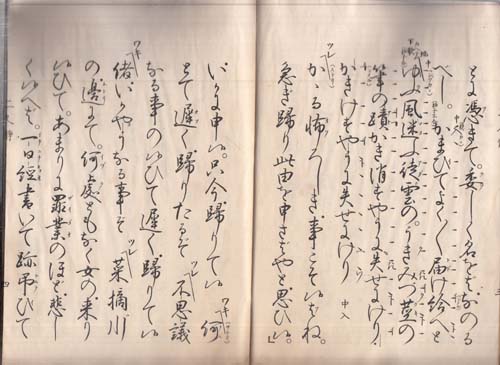 も憑きて。委しく名をばなのる
べし。かまひてよく〳〵届け給へと
地 ゆふ風迷ふあだ雲の。うき水茎の
筆の蹟かき消すやうに失せにけり
かきけすやうに失せにけり 中入
ツレ かゝる怖ろしき事こそ候はね。
急ぎ帰り此由を申さばやと思ひ候。
いかに申候。只今帰りて候 ワキ 何
とて遅く帰りたるぞ ツレ 不思議
なる事の候ひて遅く帰りて候
ワキ 偖いかやうなる事ぞ ツレ 菜摘川
の邊にて。何處ともなく女の来り
候ひて。あまりに罪業のほど悲し
く候へば。一日經書いて跡弔ひて